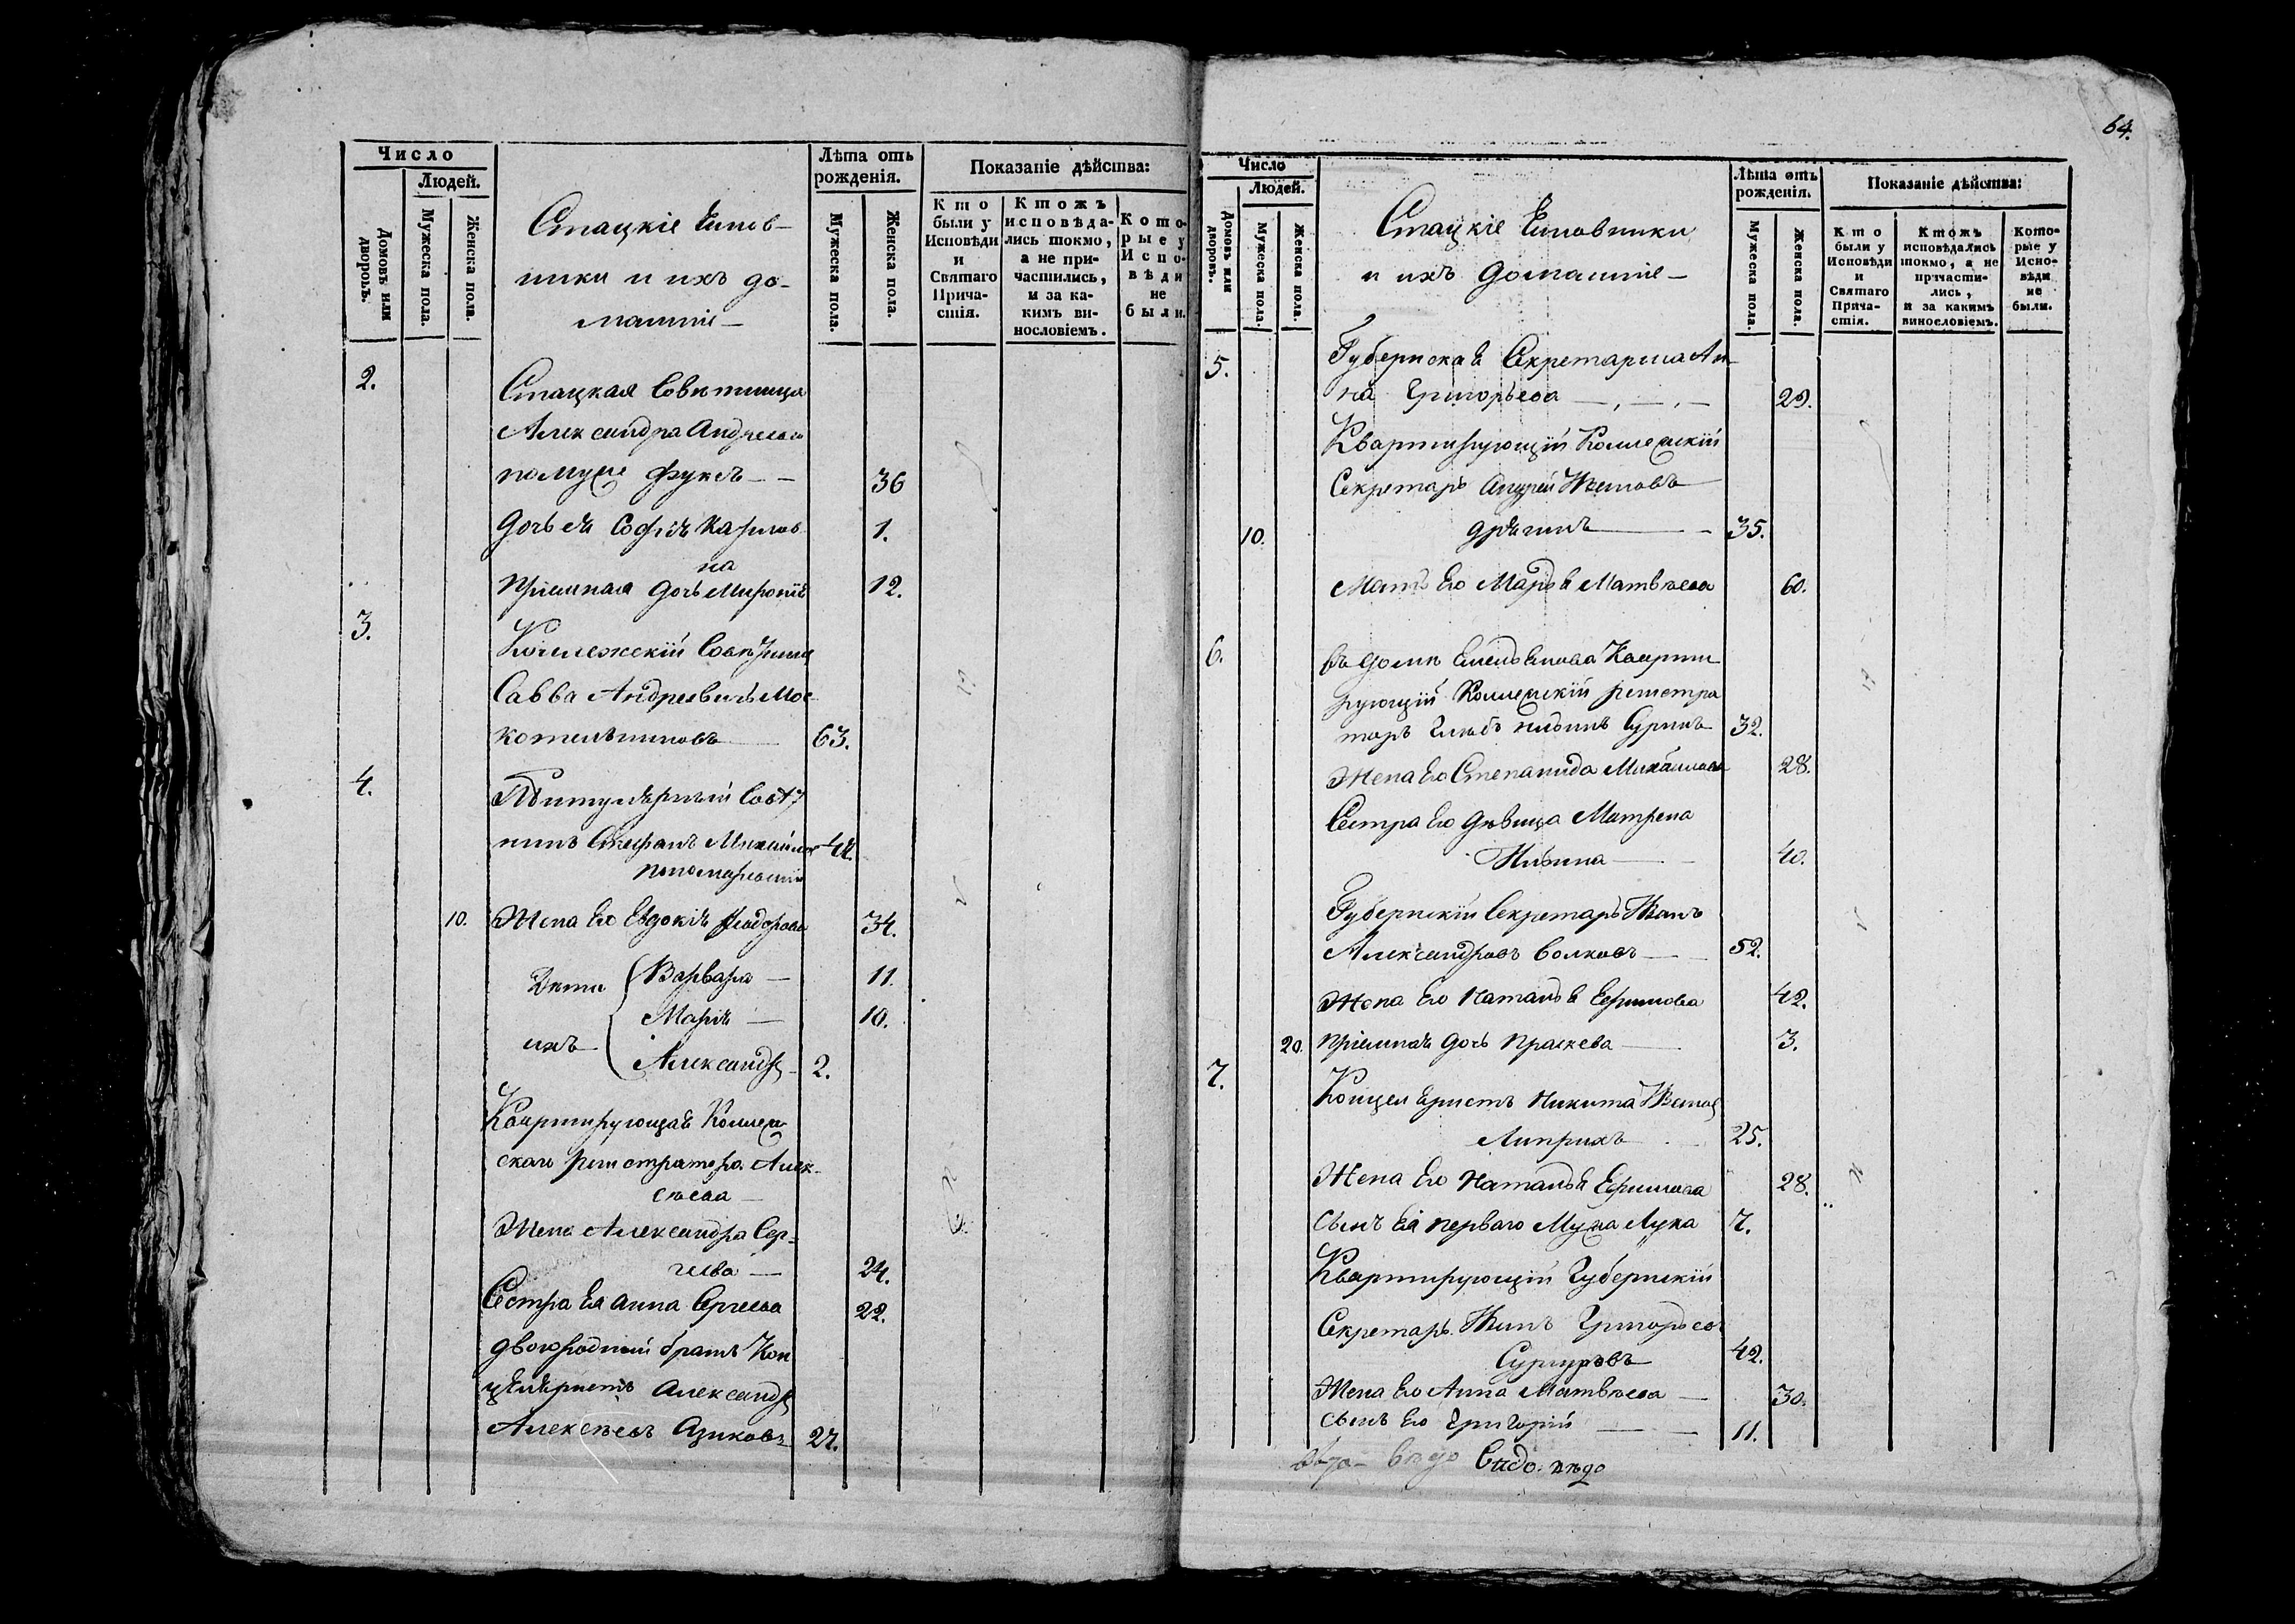 Число
Людей.
Домовъ или дворовъ.
Мужеска пола.
Женска пола.
Стацкіе Чинов-
ники и ихъ до-
машніе
Лѣта отъ
рожденія.
Мужеска пола.
Женска пола.
Показаніе дѣйства:
Кто
были у
Исповѣди
и
Святаго
Прича-
стія.
Ктожъ
исповѣда-
лись токмо,
а не при-
частились,
и за ка-
кимъ ви-
нословіемъ.
Кото-
рые у
Испо-
вѣди
не
были.
2.
Стацкая Совѣтница
Александра Андреева
по муже Фуксъ 36
Дочь ея Софія Карлов 1.
на
пріемная дочь 12.
3.
Колежскій Совѣтни
Савва Андреевичъ Мос
котильниковъ 63.
4.
Титулярный Совѣт
никъ Стефанъ Михайлов 42.
10. Жена Его Евдокія Феодорова 34.
Дѣти Варвара 11.
Марія 10.
ихъ
Александр 2.
Квартирующая Коллеж
скаго регистратора Алек-
сѣева
Жена Александра Сер-
гѣева 24.
Сестра Ея Анна Сергѣева 22.
двоюродный братъ Кан
целяристъ Александр
Алексѣевъ 27.
64.
Число
Людей.
Домовъ или дворовъ.
Мужеска пола.
Женска пола.
Стацкіе Чиновники
и ихъ домашніе
Лѣта отъ
рожденія.
Мужеска пола.
Женска пола.
Показаніе дѣйства:
Кто
были у
Исповѣди
и
Святаго
Прича-
стія.
Ктожъ
исповѣдались
токмо, а не
причасти-
лись,
и за какимъ
винословіемъ.
Кото-
рые у
Испо-
вѣди
не
были.
5.
Губернская Секретарша Ан-
на Григорьева 29.
Квартирующій Коллежскій
Секретарь Андрей Ивановъ
10. 35.
Мать Его Марья Матвѣева 60.
6.
въ доме Емельянова Кварти
рующій Коллежскій регистра
торъ Глѣбъ 32.
Жена Его Степанида Михайлова 28.
Сестра Его дѣвица Матрена
40.
Губернскій Секретарь Иванъ
Александровъ Волковъ 52.
Жена Его Наталья Ефимова 42.
20. пріемная дочь Праскева 3.
7.
Концеляристъ Никита Иванов
25.
Жена Его Наталья Ефимова 28.
Сынъ Ея перваго Мужа Лука 7.
Квартирующій Губернскій
Секретарь Иванъ Григорьев
42.
Жена Его Анна Матвѣева 30.
Сынъ Его Григорій 11.